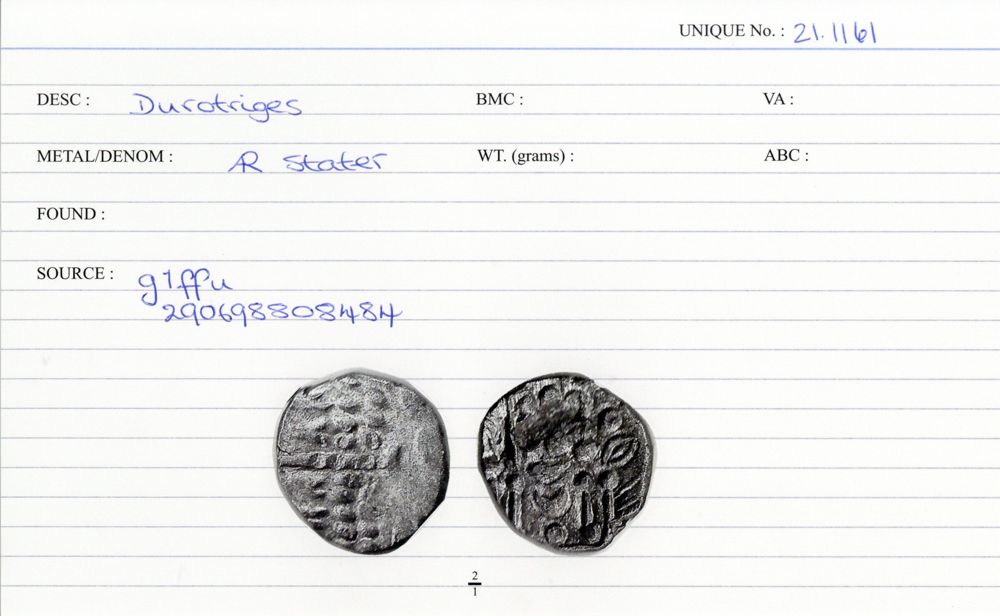 UNIQUE No. : 21.1161
DESC : Durotriges BMC : VA :
METAL/DENOM : AR Stater WT. (grams) : ABC :
FOUND :
SOURCE : g1ffu
290698808484
2
1